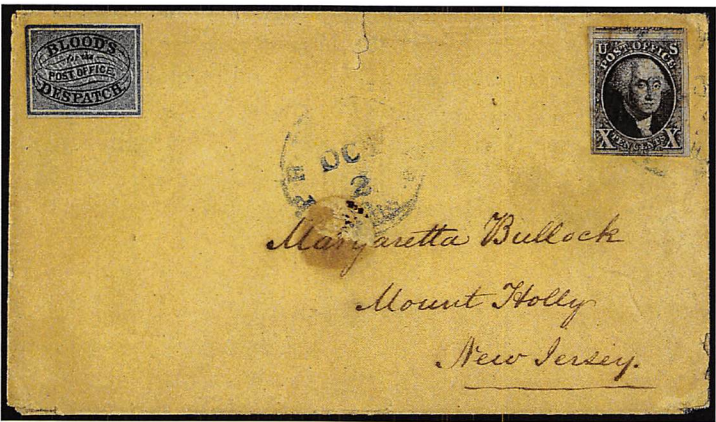 BLOOD'S
for the
POST OFFICE
DESPATCH
U S
POST OFFICE
X TEN CENTS X
OCT
2
Margaretta Bullock
Mount Holly
New Jersey.